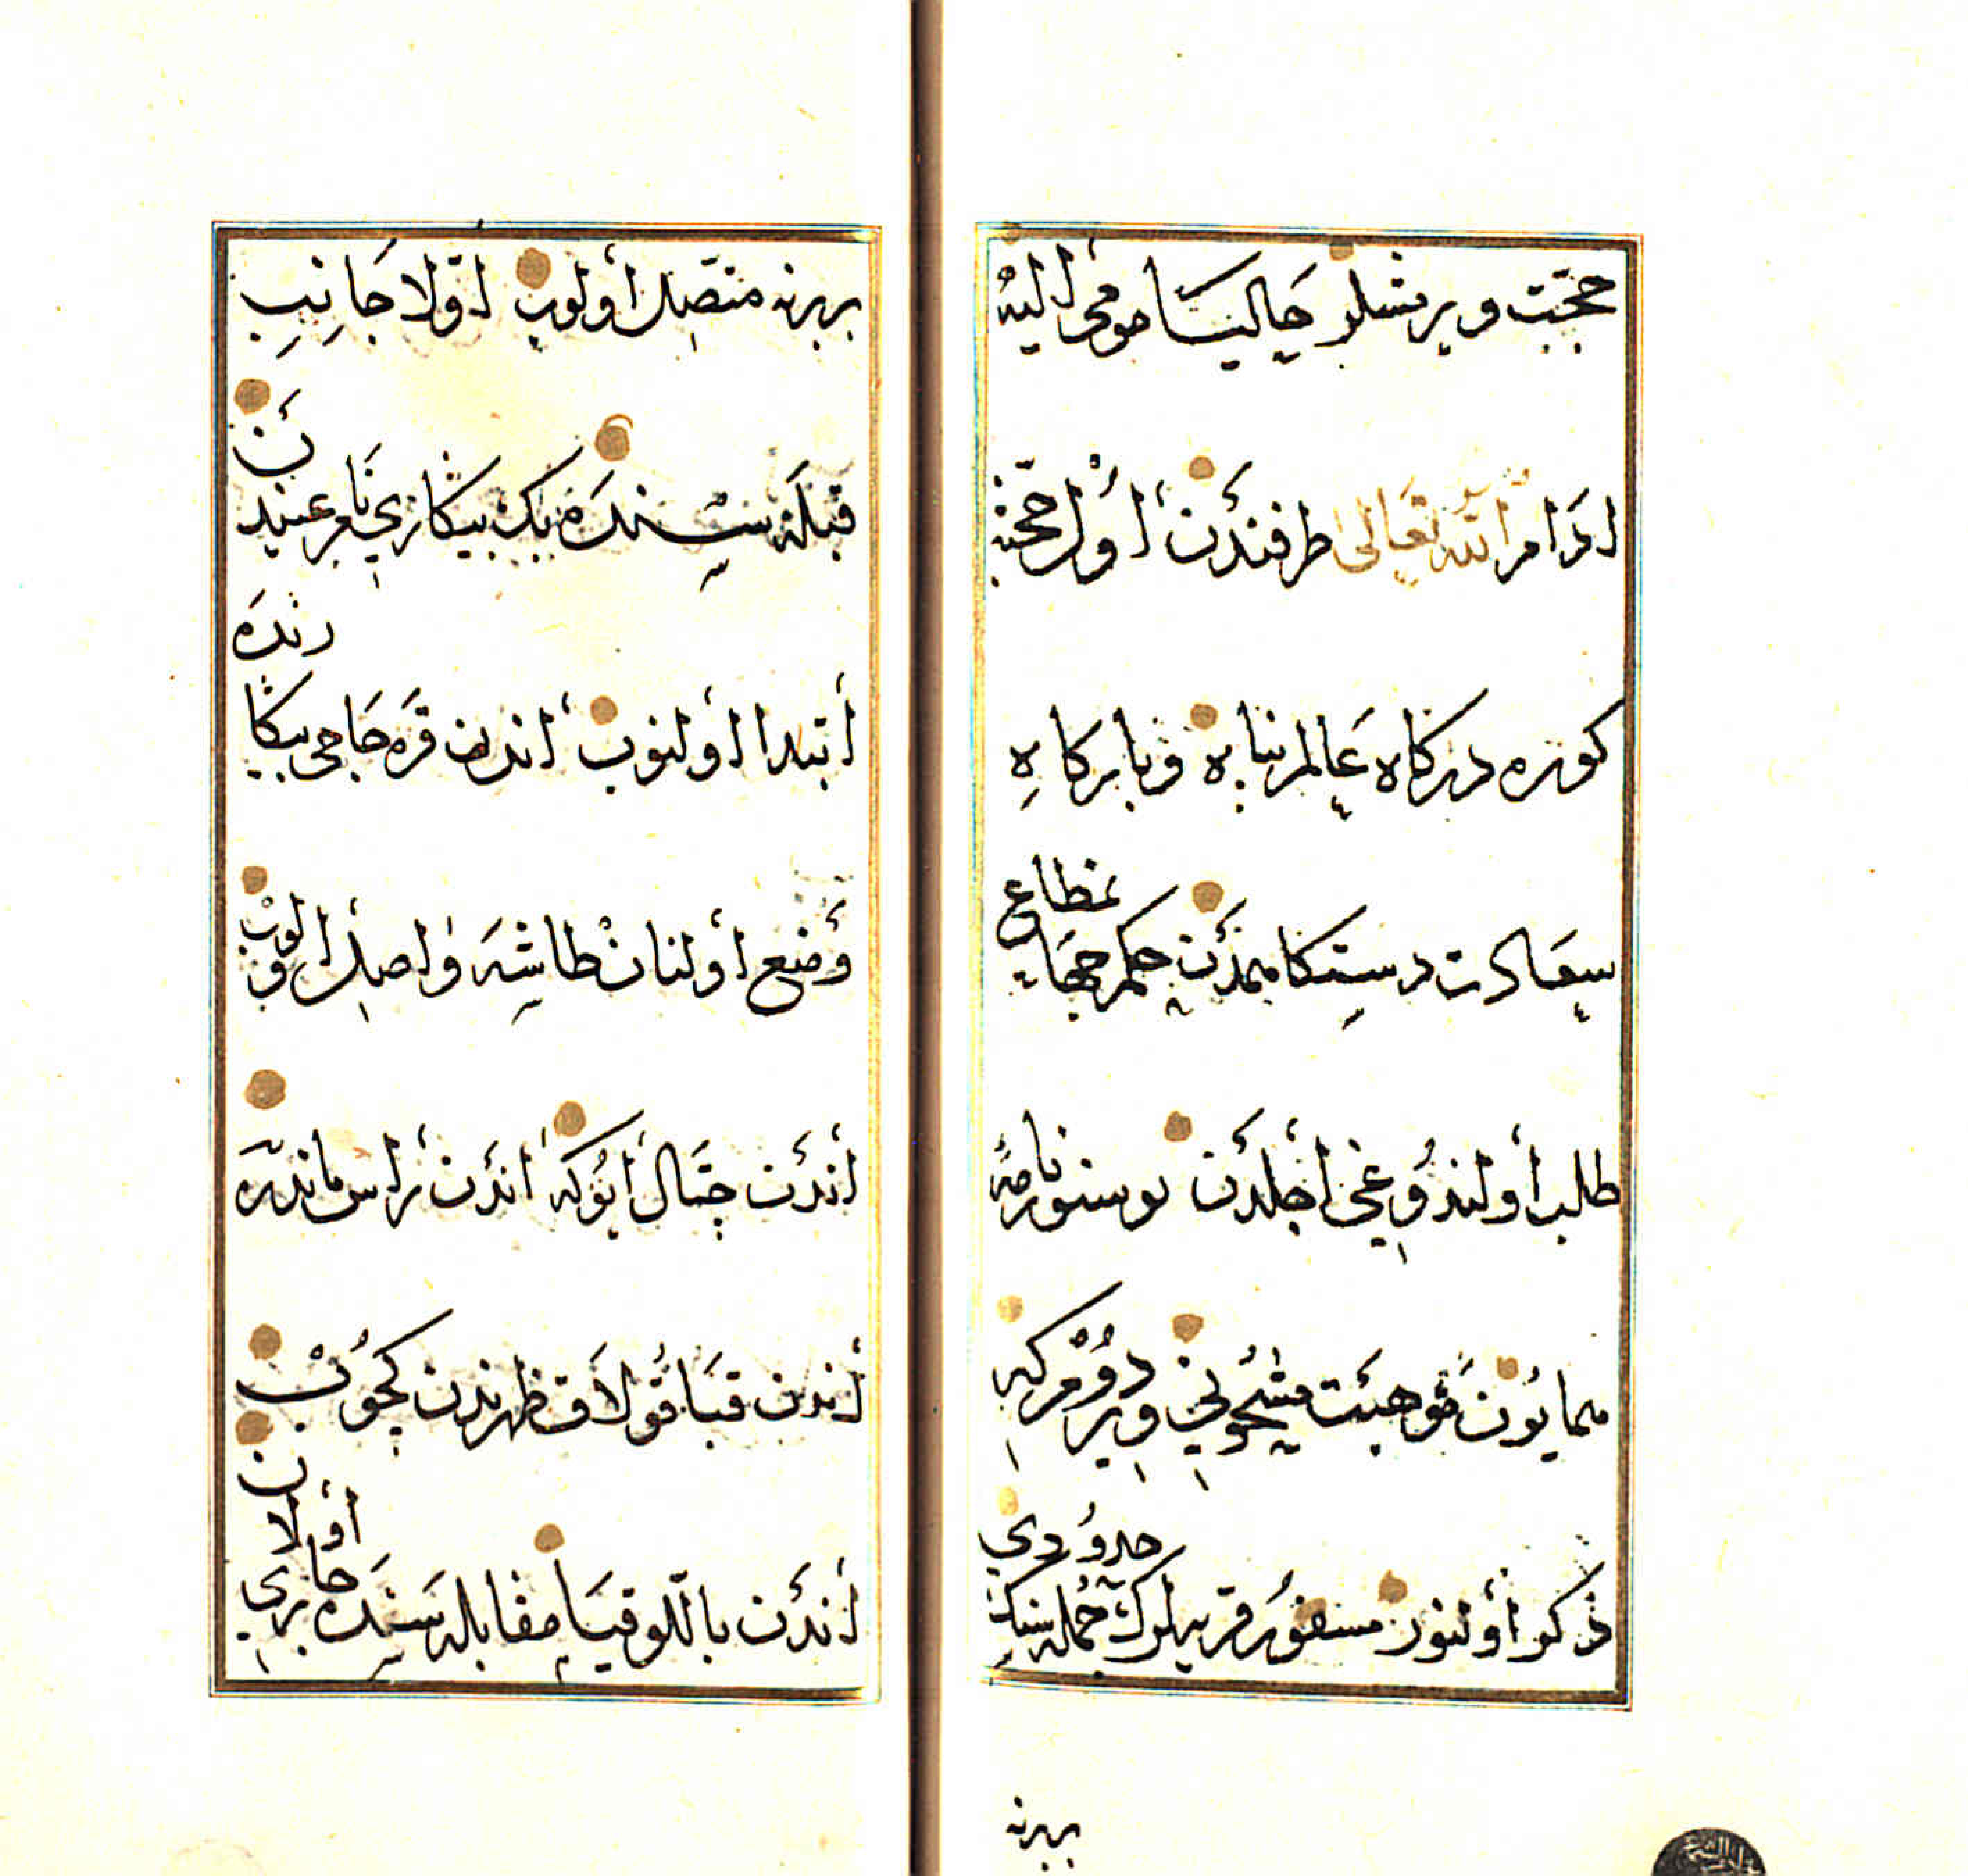 حجّت ويرمشلر حاليا مومى اليه
ادام الله تعالى طرفندن اول حجّته
كوره دركاه عالمپناه و باركاه
سعادت دستكاهمدن حكم جهانمطاع
طلب اولندوغى اجلدن بو سنورنامهٔ
همايون موهبت مشحونى ويردم كه
ذكر اولنور مسفور قريه لرك جمله سنك حدودى
بربرنه
بربرنه متّصل اولوب اوّلا جانب
قبله سنده بيك بيكارى نام عينيدن
ابتدا اولنوب اندن قره حاجى بيكارندن
وضع اولنان طاشه واصل اولوب
اندن چتال ايوكه اندن راس ماندره
اندن قبا قولاق ظهرندن كچوب
اندن باللو قيا مقابله سنده جارى اولان